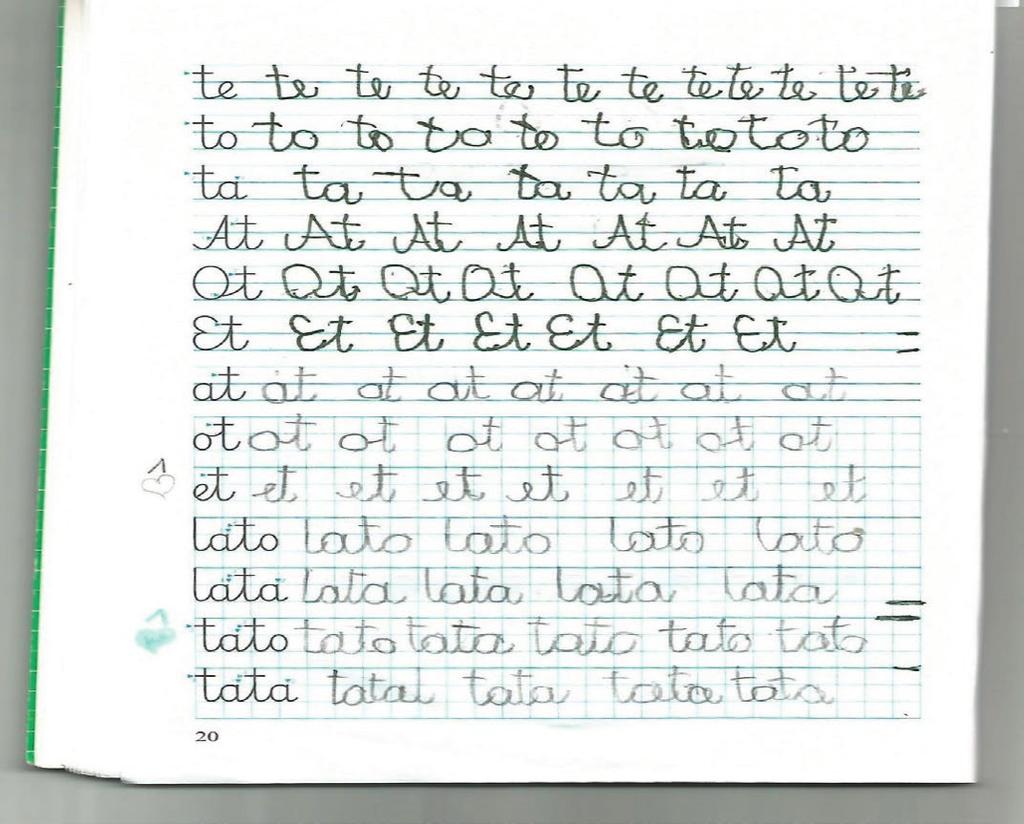 te te te te te te te te te te te te
to to to ta to to to to to
ta ta ta ta ta ta ta
At At At At At At At
Ot Ot Ot Ot Ot Ot Ot Ot
Et Et Et Et Et Et Et
at at at at at at at at
ot ot ot ot ot ot ot ot
et et et et et et et et
lato lato lato lato lato
lata lata lata lata lata
tato tato tata tato tato tato
tata tatal tata tata tata
20